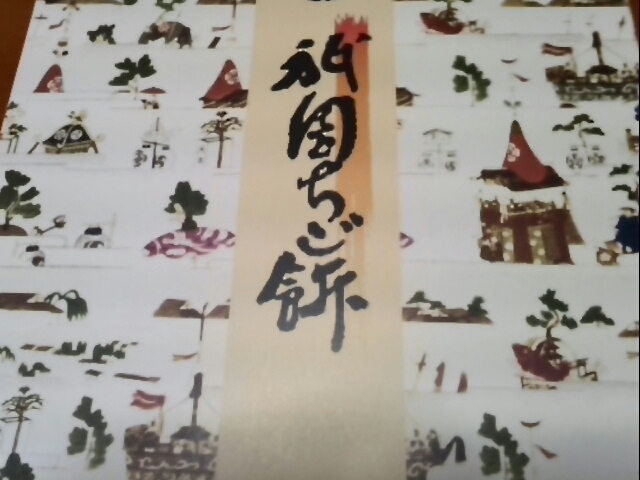 祇園ちご餅